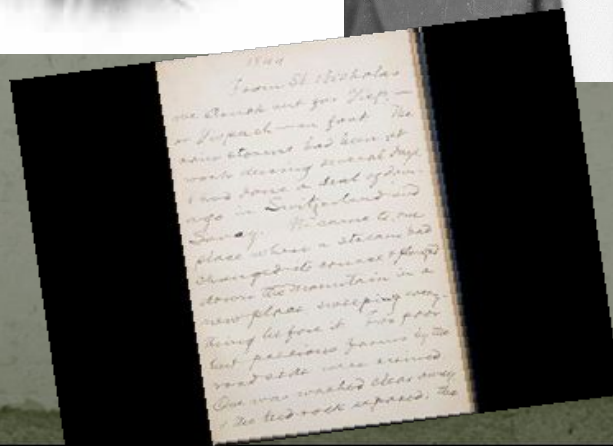 From St. Nicholas
we struck out for Visp, —
or Vispach — on foot. The
rain storms had been at
work during several days,
& had done a deal of dam-
age in Switzerland and
Savoy. We came to one
place where a stream had
changed its course & plunged
down the mountain in a
new place, sweeping every-
thing before it. Two poor
but precious farms by the
road side were ruined.
One was washed clear away
& the bed-rock exposed; the